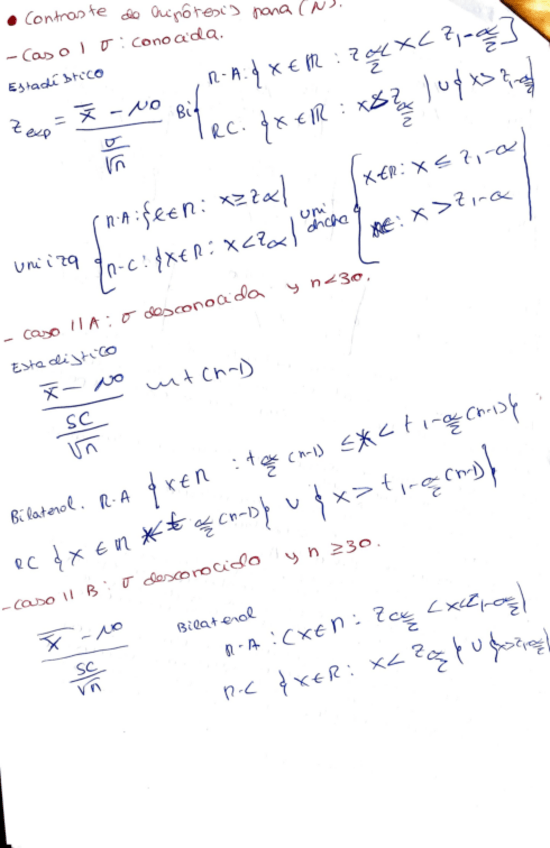 • Contraste de hipótesis para (N).
- Caso I σ: conocida.
Estadístico
Zexp = (x̄ - μ0) / (σ/√n)
Bi { R.A: { x ∈ ℝ : Zα/2 < x < Z1-α/2 }
RC. { x ∈ ℝ : x < Zα/2 } ∪ { x > Z1-α/2 }
uni izq { R.A: { x ∈ ℝ : x ≥ Zα }
R.C: { x ∈ ℝ : x < Zα }
uni dcha { x ∈ ℝ : x ≤ Z1-α
RC: x > Z1-α
- Caso II A: σ desconocida y n < 30.
Estadístico
(x̄ - μ0) / (SC/√n) ~ t (n-1)
Bilateral. R.A { x ∈ ℝ : t α/2 (n-1) ≤ x < t 1-α/2 (n-1) }
RC { x ∈ ℝ x < t α/2 (n-1) } ∪ { x > t 1-α/2 (n-1) }
- Caso II B: σ desconocido y n ≥ 30.
(x̄ - μ0) / (SC/√n)
Bilateral
R.A : ( x ∈ ℝ : Zα/2 < x < Z1-α/2 }
R.C { x ∈ ℝ : x < Zα/2 } ∪ { > Z1-α/2 }